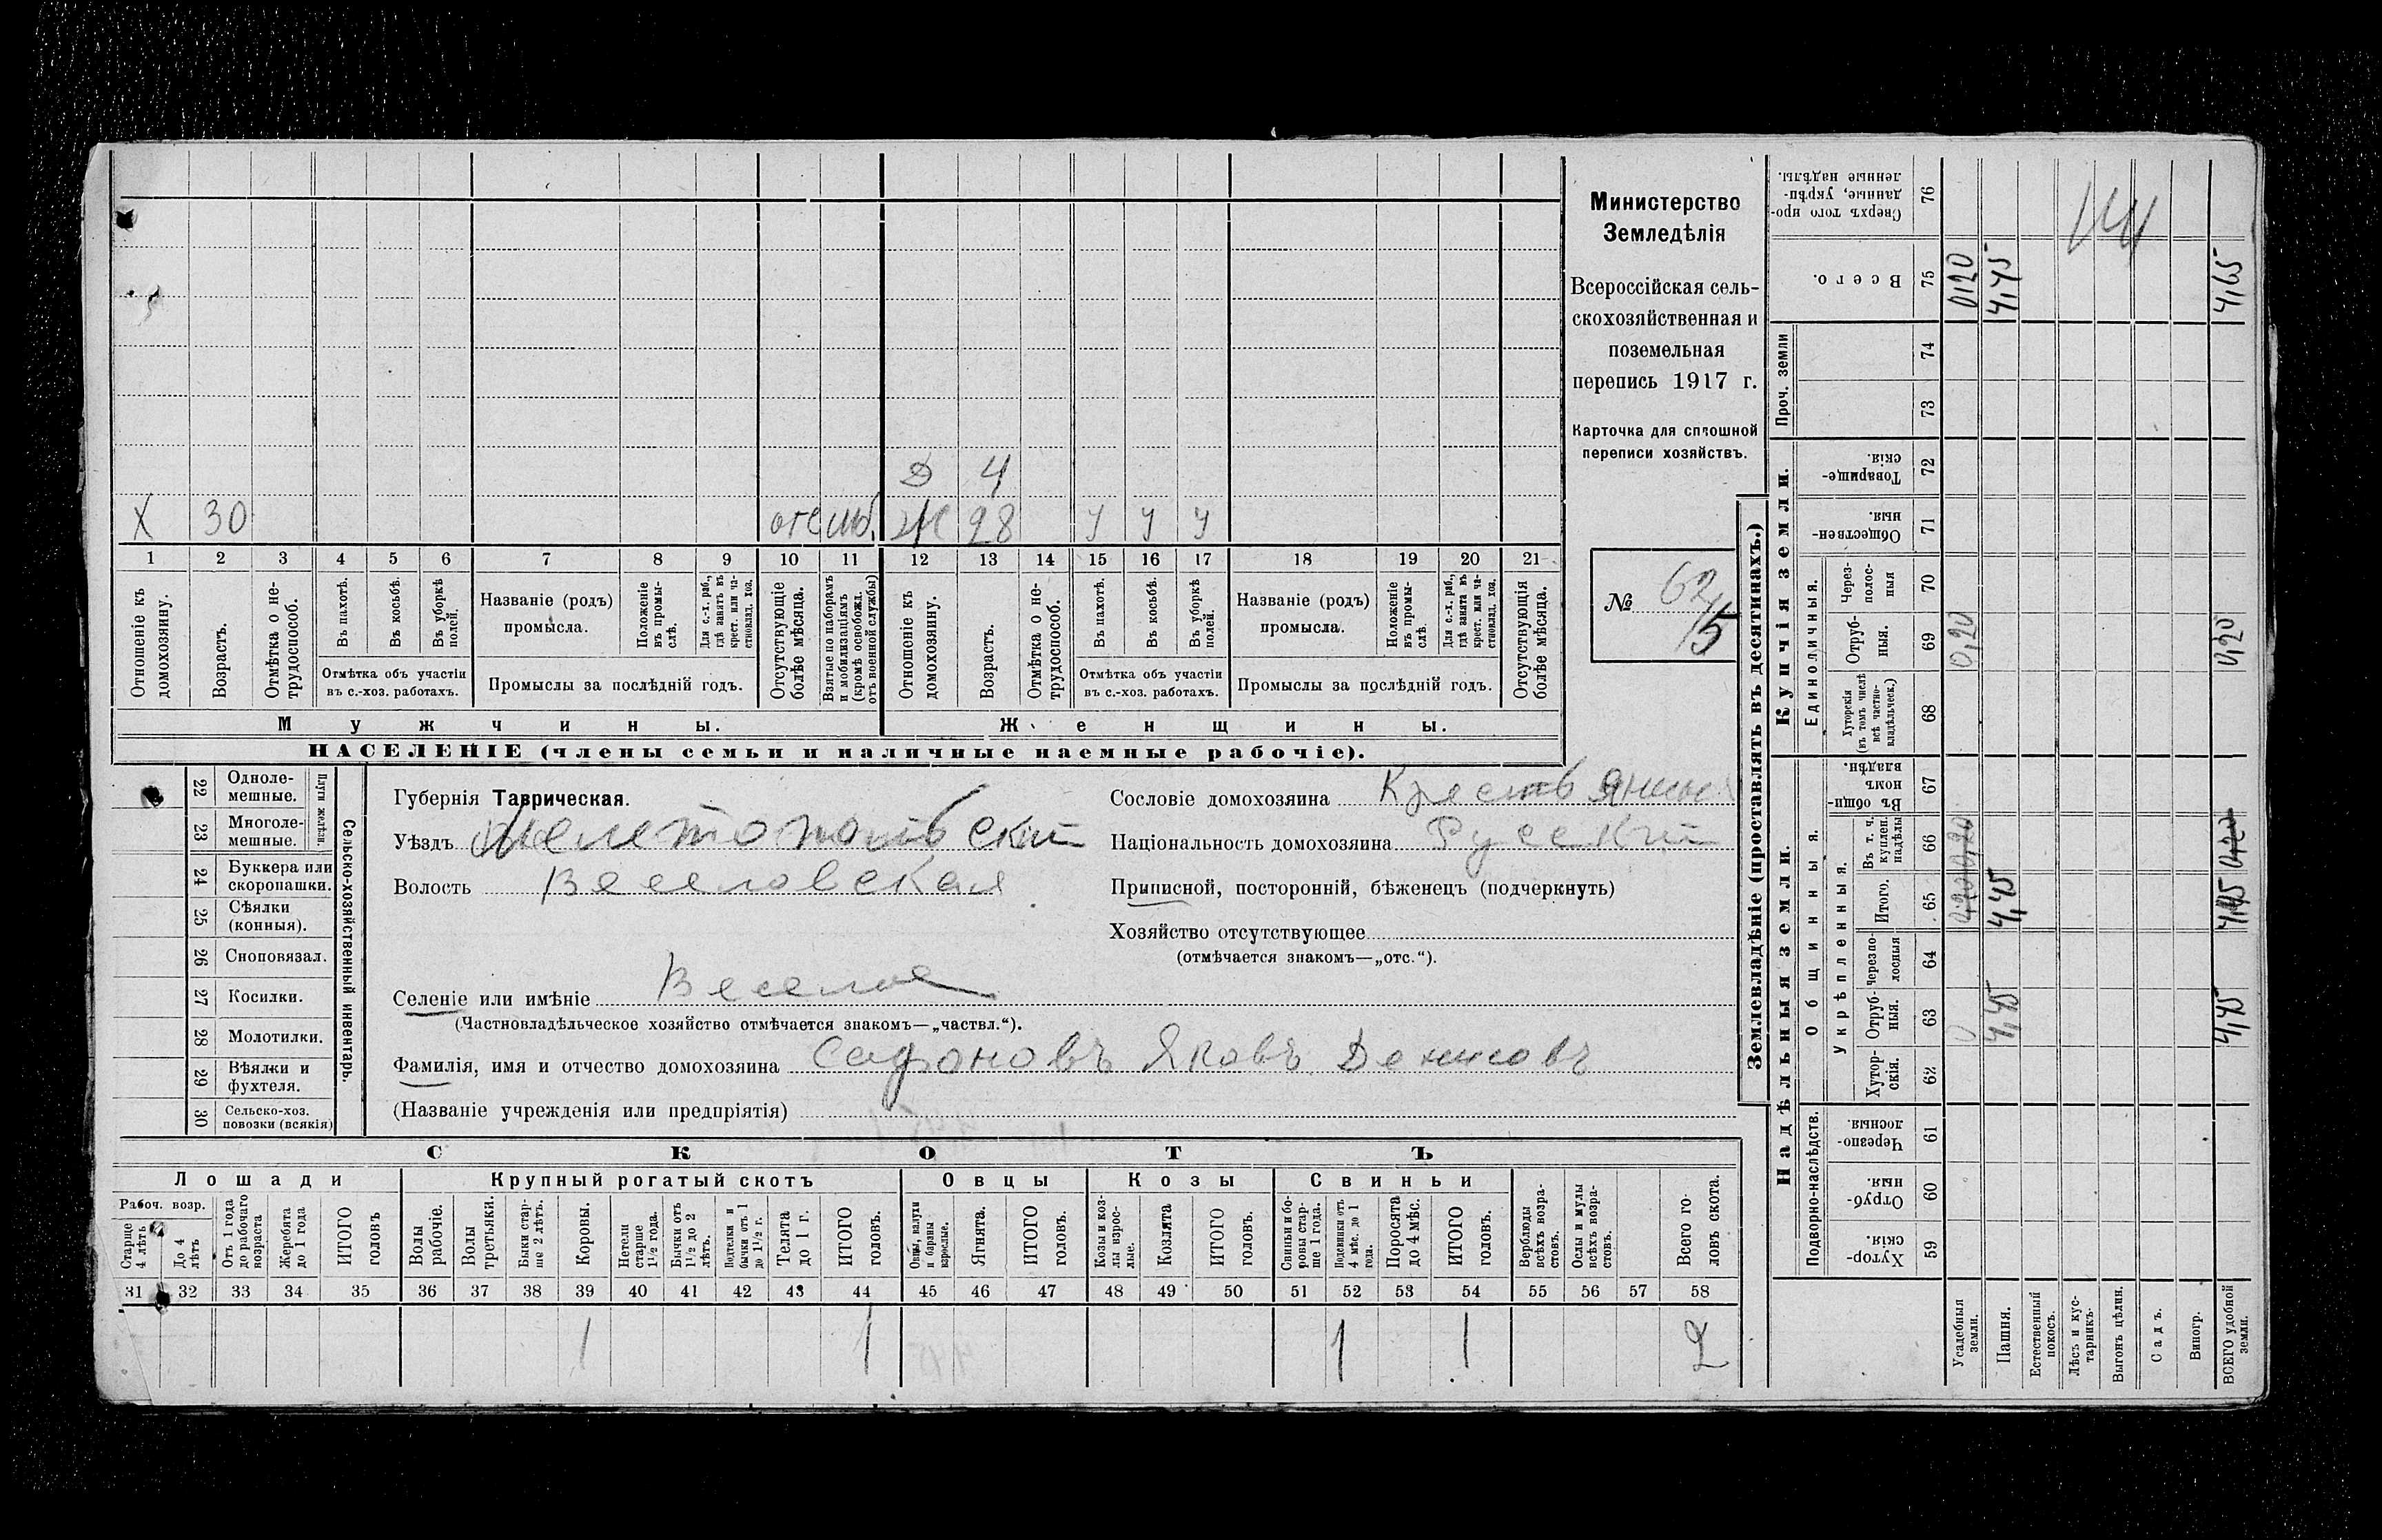 Министерство
Земледѣлія
Всероссійская сель-
скохозяйственная и
поземельная
перепись 1917 г.
Карточка для сплошной
переписи хозяйствъ.
№ 62
15
Д 4
X 30 отс моб. Ж 28 у у у
1 2 3 4 5 6 7 8 9 10 11 12 13 14 15 16 17 18 19 20 21
Отношеніе къ домохозяину.
Возрастъ.
Отмѣтка о не-трудоспособ.
Въ пахотѣ.
Въ косьбѣ.
Въ уборкѣ полей.
Отмѣтка объ участіи
въ с.-хоз. работахъ.
Названіе (родъ)
промысла.
Положеніе въ промы-слѣ.
Для с.-х. раб., гдѣ занятъ въ крест. или ча-стновлад. хоз.
Промыслы за послѣдній годъ.
Отсутствующіе болѣе мѣсяца.
Взятые по наборамъ и мобилизаціямъ (кромѣ освобожд. отъ военной службы)
Отношеніе къ домохозяину.
Возрастъ.
Отмѣтка о не-трудоспособ.
Въ пахотѣ.
Въ косьбѣ.
Въ уборкѣ полей.
Отмѣтка объ участіи
въ с.-хоз. работахъ.
Названіе (родъ)
промысла.
Положеніе въ промы-слѣ.
Для с.-х. раб., гдѣ занята въ крест. или ча-стновлад. хоз.
Промыслы за послѣдній годъ.
Отсутствующія болѣе мѣсяца.
Мужчины. Женщины.
НАСЕЛЕНІЕ (члены семьи и наличные наемные рабочіе).
22 Одноле-мешные.
23 Многоле-мешные.
Плуги желѣзн.
24 Буккера или скоропашки.
25 Сѣялки (конныя).
26 Сноповязал.
27 Косилки.
28 Молотилки.
29 Вѣялки и фухтеля.
30 Сельско-хоз. повозки (всякія)
Сельско-хозяйственный инвентарь.
Губернія Таврическая.
Уѣздъ Мелитопольскій
Волость Веселовская
Селеніе или имѣніе Веселое
(Частновладѣльческое хозяйство отмѣчается знакомъ—„частвл.“).
Фамилія, имя и отчество домохозяина Сафоновъ Яковъ Денисовъ
(Названіе учрежденія или предпріятія)
Сословіе домохозяина Крестьянинъ
Національность домохозяина Русскій
Приписной, посторонній, бѣженецъ (подчеркнуть)
Хозяйство отсутствующее
(отмѣчается знакомъ—„отс.“).
СКОТЪ
Лошади Крупный рогатый скотъ Овцы Козы Свиньи
Рабоч. возр.
Старше 4 лѣтъ
До 4 лѣтъ
Отъ 1 года до рабочаго возраста
Жеребята до 1 года
ИТОГО головъ
Волы рабочіе.
Волы третьяки.
Быки стар-ше 2 лѣтъ.
Коровы.
Нетели старше 1½ года.
Бычки отъ 1½ до 2 лѣтъ.
Подтелки и бычки отъ 1 до 1½ г.
Телята до 1 г.
ИТОГО головъ.
Овцы, валухи и бараны взрослые.
Ягнята.
ИТОГО головъ.
Козы и коз-лы взрос-лые.
Козлята
ИТОГО головъ.
Свиньи и бо-ровы стар-ше 1 года.
Подсвинки отъ 4 мѣс. до 1 года.
Поросята до 4 мѣс.
ИТОГО головъ.
Верблюды всѣхъ возра-стовъ.
Ослы и мулы всѣхъ возра-стовъ.
Всего го-ловъ скота.
31 32 33 34 35 36 37 38 39 40 41 42 43 44 45 46 47 48 49 50 51 52 53 54 55 56 57 58
1 1 1 1 2
Землевладѣніе (проставлять въ десятинахъ.)
Надѣльныя земли.
Купчія земли.
Проч. земли
Подворно-наслѣдств.
Общинныя.
Укрѣпленныя.
Единоличныя.
Хутор-скія. 59
Отруб-ныя. 60
Черезпо-лосныя 61
Хутор-скія. 62
Отруб-ныя. 63 4,45 4,45
Черезпо-лосныя 64
Итого. 65 4,45
Въ т. ч. куплен. надѣлы 66
Въ общин-номъ владѣн. 67
Хуторскія (въ томъ числѣ всѣ частно-владѣльческ.) 68
Отруб-ныя. 69 0,20 0,20
Через-полос-ныя 70
Обществен-ныя. 71
Товарище-скія. 72
73
74
Всего. 75 0,20 4,45 4,65
Сверхъ того про-данные, укрѣп-ленные надѣлы. 76
Усадебныя земли.
Пашня.
Естественный покосъ.
Лѣсъ и кус-тарникъ.
Выгонъ цѣлин.
Садъ.
Виногр.
ВСЕГО удобной земли.